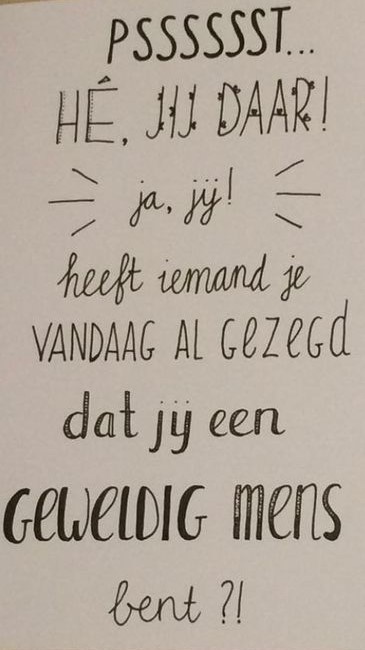 PSSSSSST...
HÉ, JIJ DAAR!
ja, jij!
heeft iemand je
VANDAAG AL GeZeGd
dat jij een
GEWELDIG mens
bent ?!